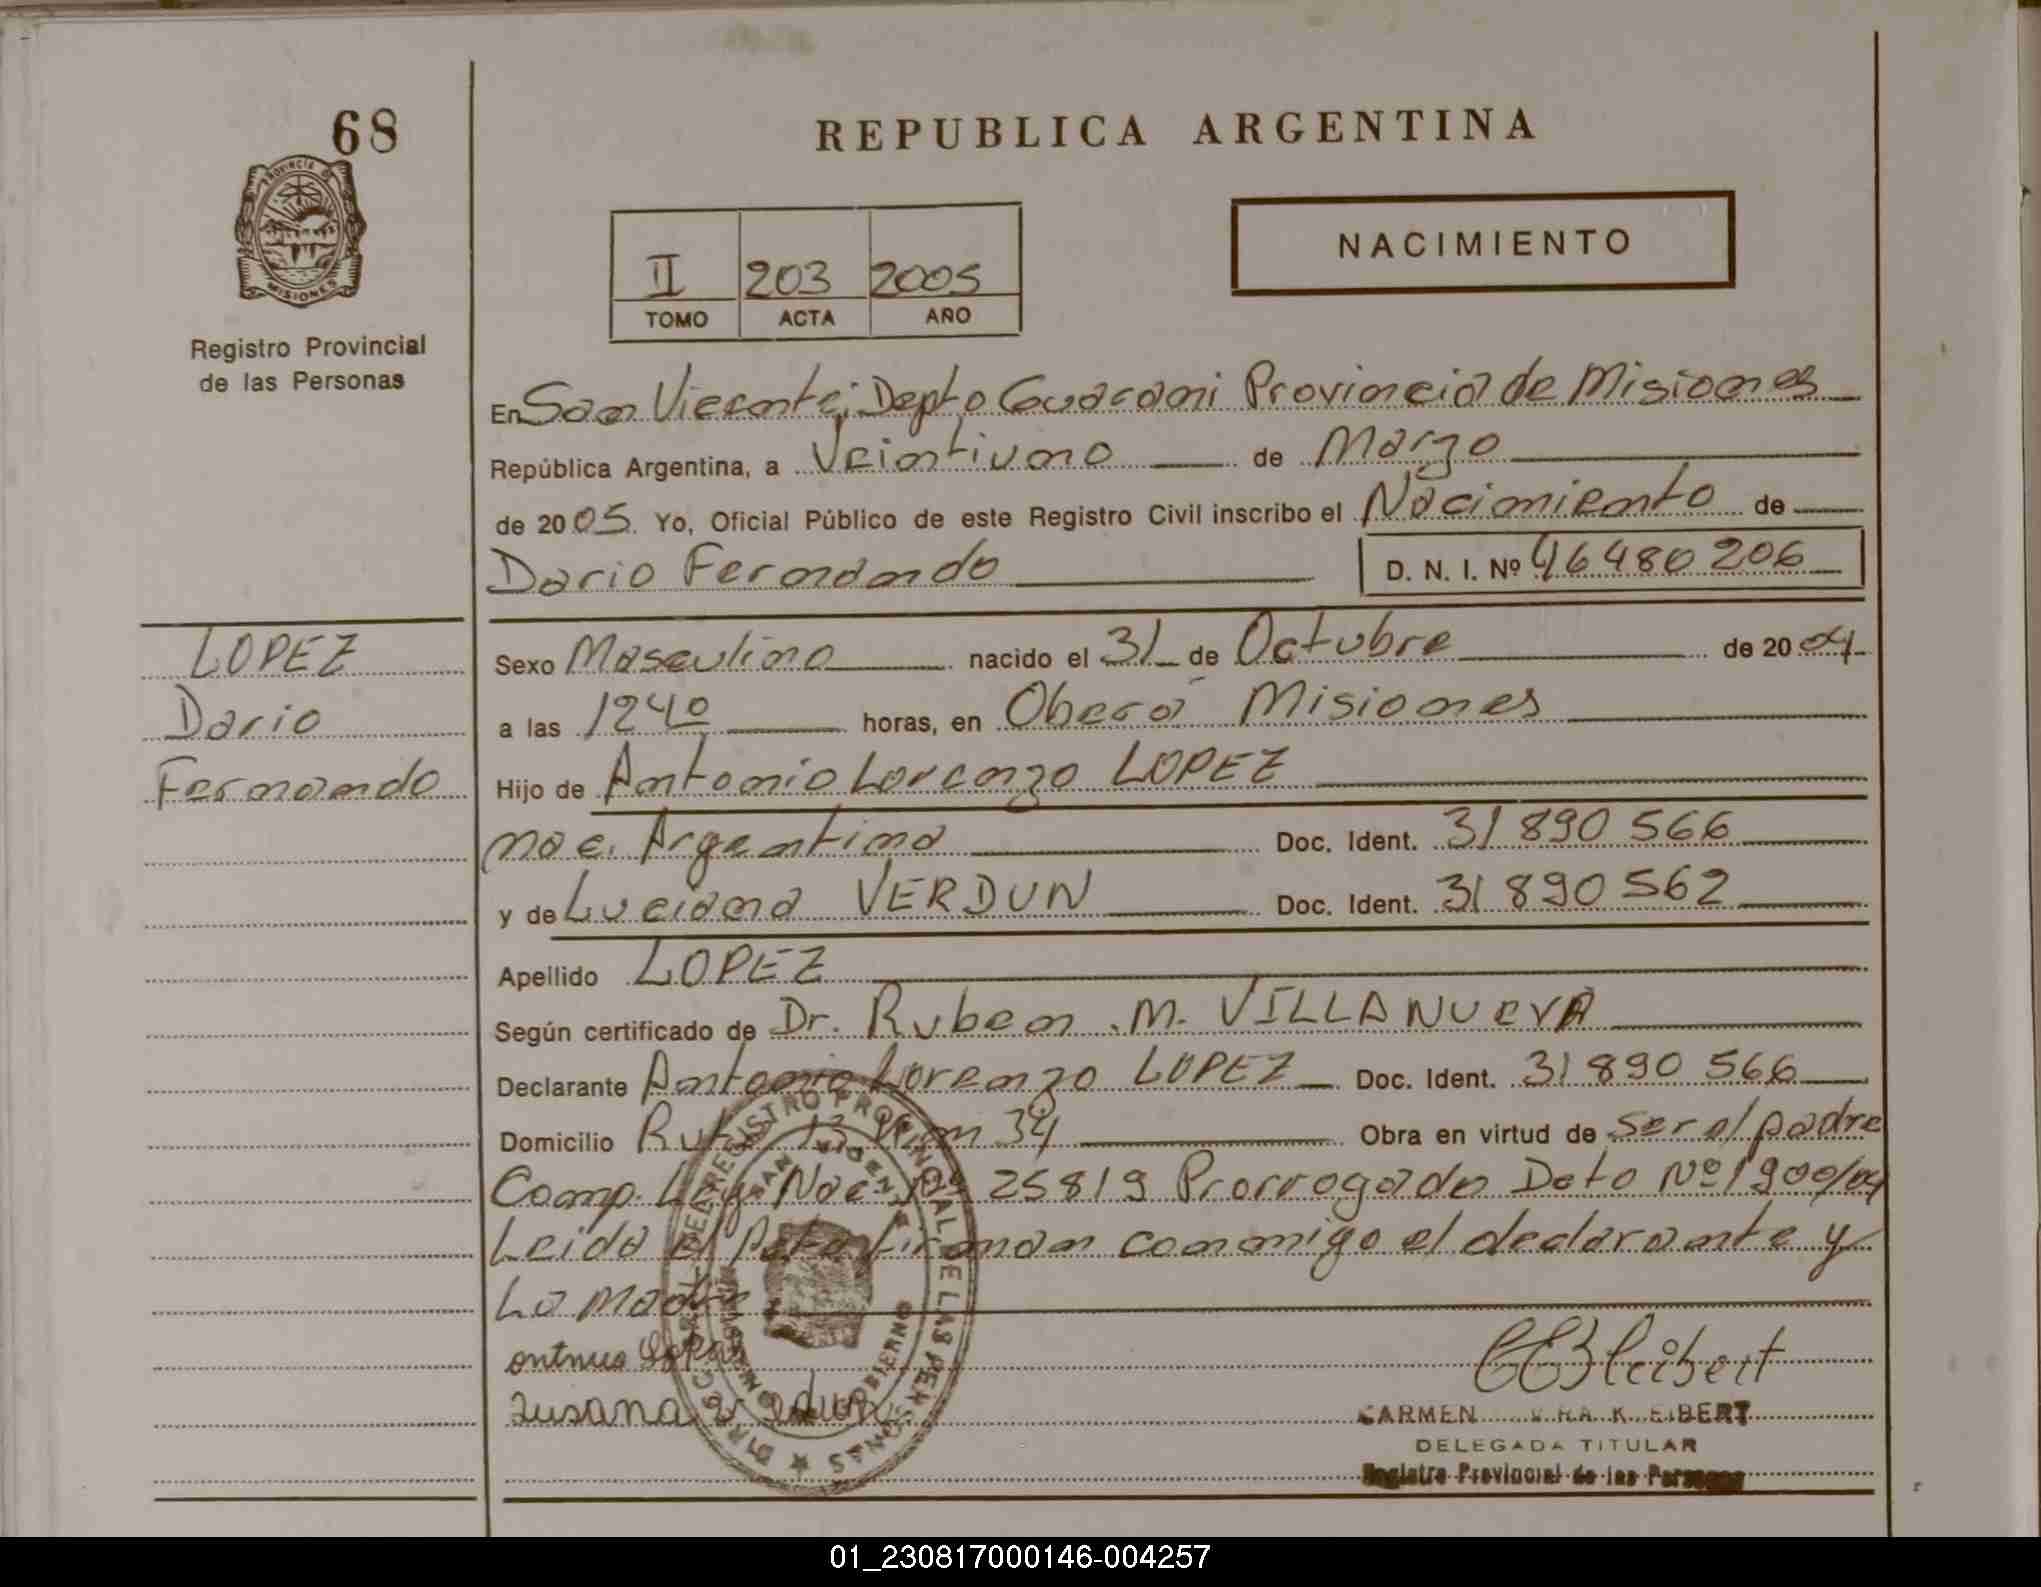 68
PROVINCIA DE
MISIONES
Registro Provincial
de las Personas
REPUBLICA ARGENTINA
II 203 2005
TOMO ACTA AÑO
NACIMIENTO
En San Vicente, Depto Guarani Provincia de Misiones
República Argentina, a Veintiuno de Marzo
de 2005. Yo, Oficial Público de este Registro Civil inscribo el Nacimiento de
Dario Fernando D. N. I. Nº 46480206
LOPEZ
Dario
Fernando
Sexo Masculino nacido el 31 de Octubre de 2004
a las 1240 horas, en Oberá Misiones
Hijo de Antonio Lorenzo LOPEZ
nac. Argentina Doc. Ident. 31 890 566
y de Luciana VERDUN Doc. Ident. 31 890 562
Apellido LOPEZ
Según certificado de Dr. Ruben M. VILLANUEVA
Declarante Antonio Lorenzo LOPEZ Doc. Ident. 31 890 566
Domicilio Ruta 13 Km 34 Obra en virtud de ser el padre
Comp. Ley Nac 25819 Prorrogada Dcto Nº 1900/04
Leida el Acta firman conmigo el declarante y
La Madre
DIRECC. GRAL. DEL REGISTRO PROVINCIAL DE LAS PERSONAS
SAN VICENTE
CARMEN
DELEGADA TITULAR
Registro Provincial de las Personas
01_230817000146-004257